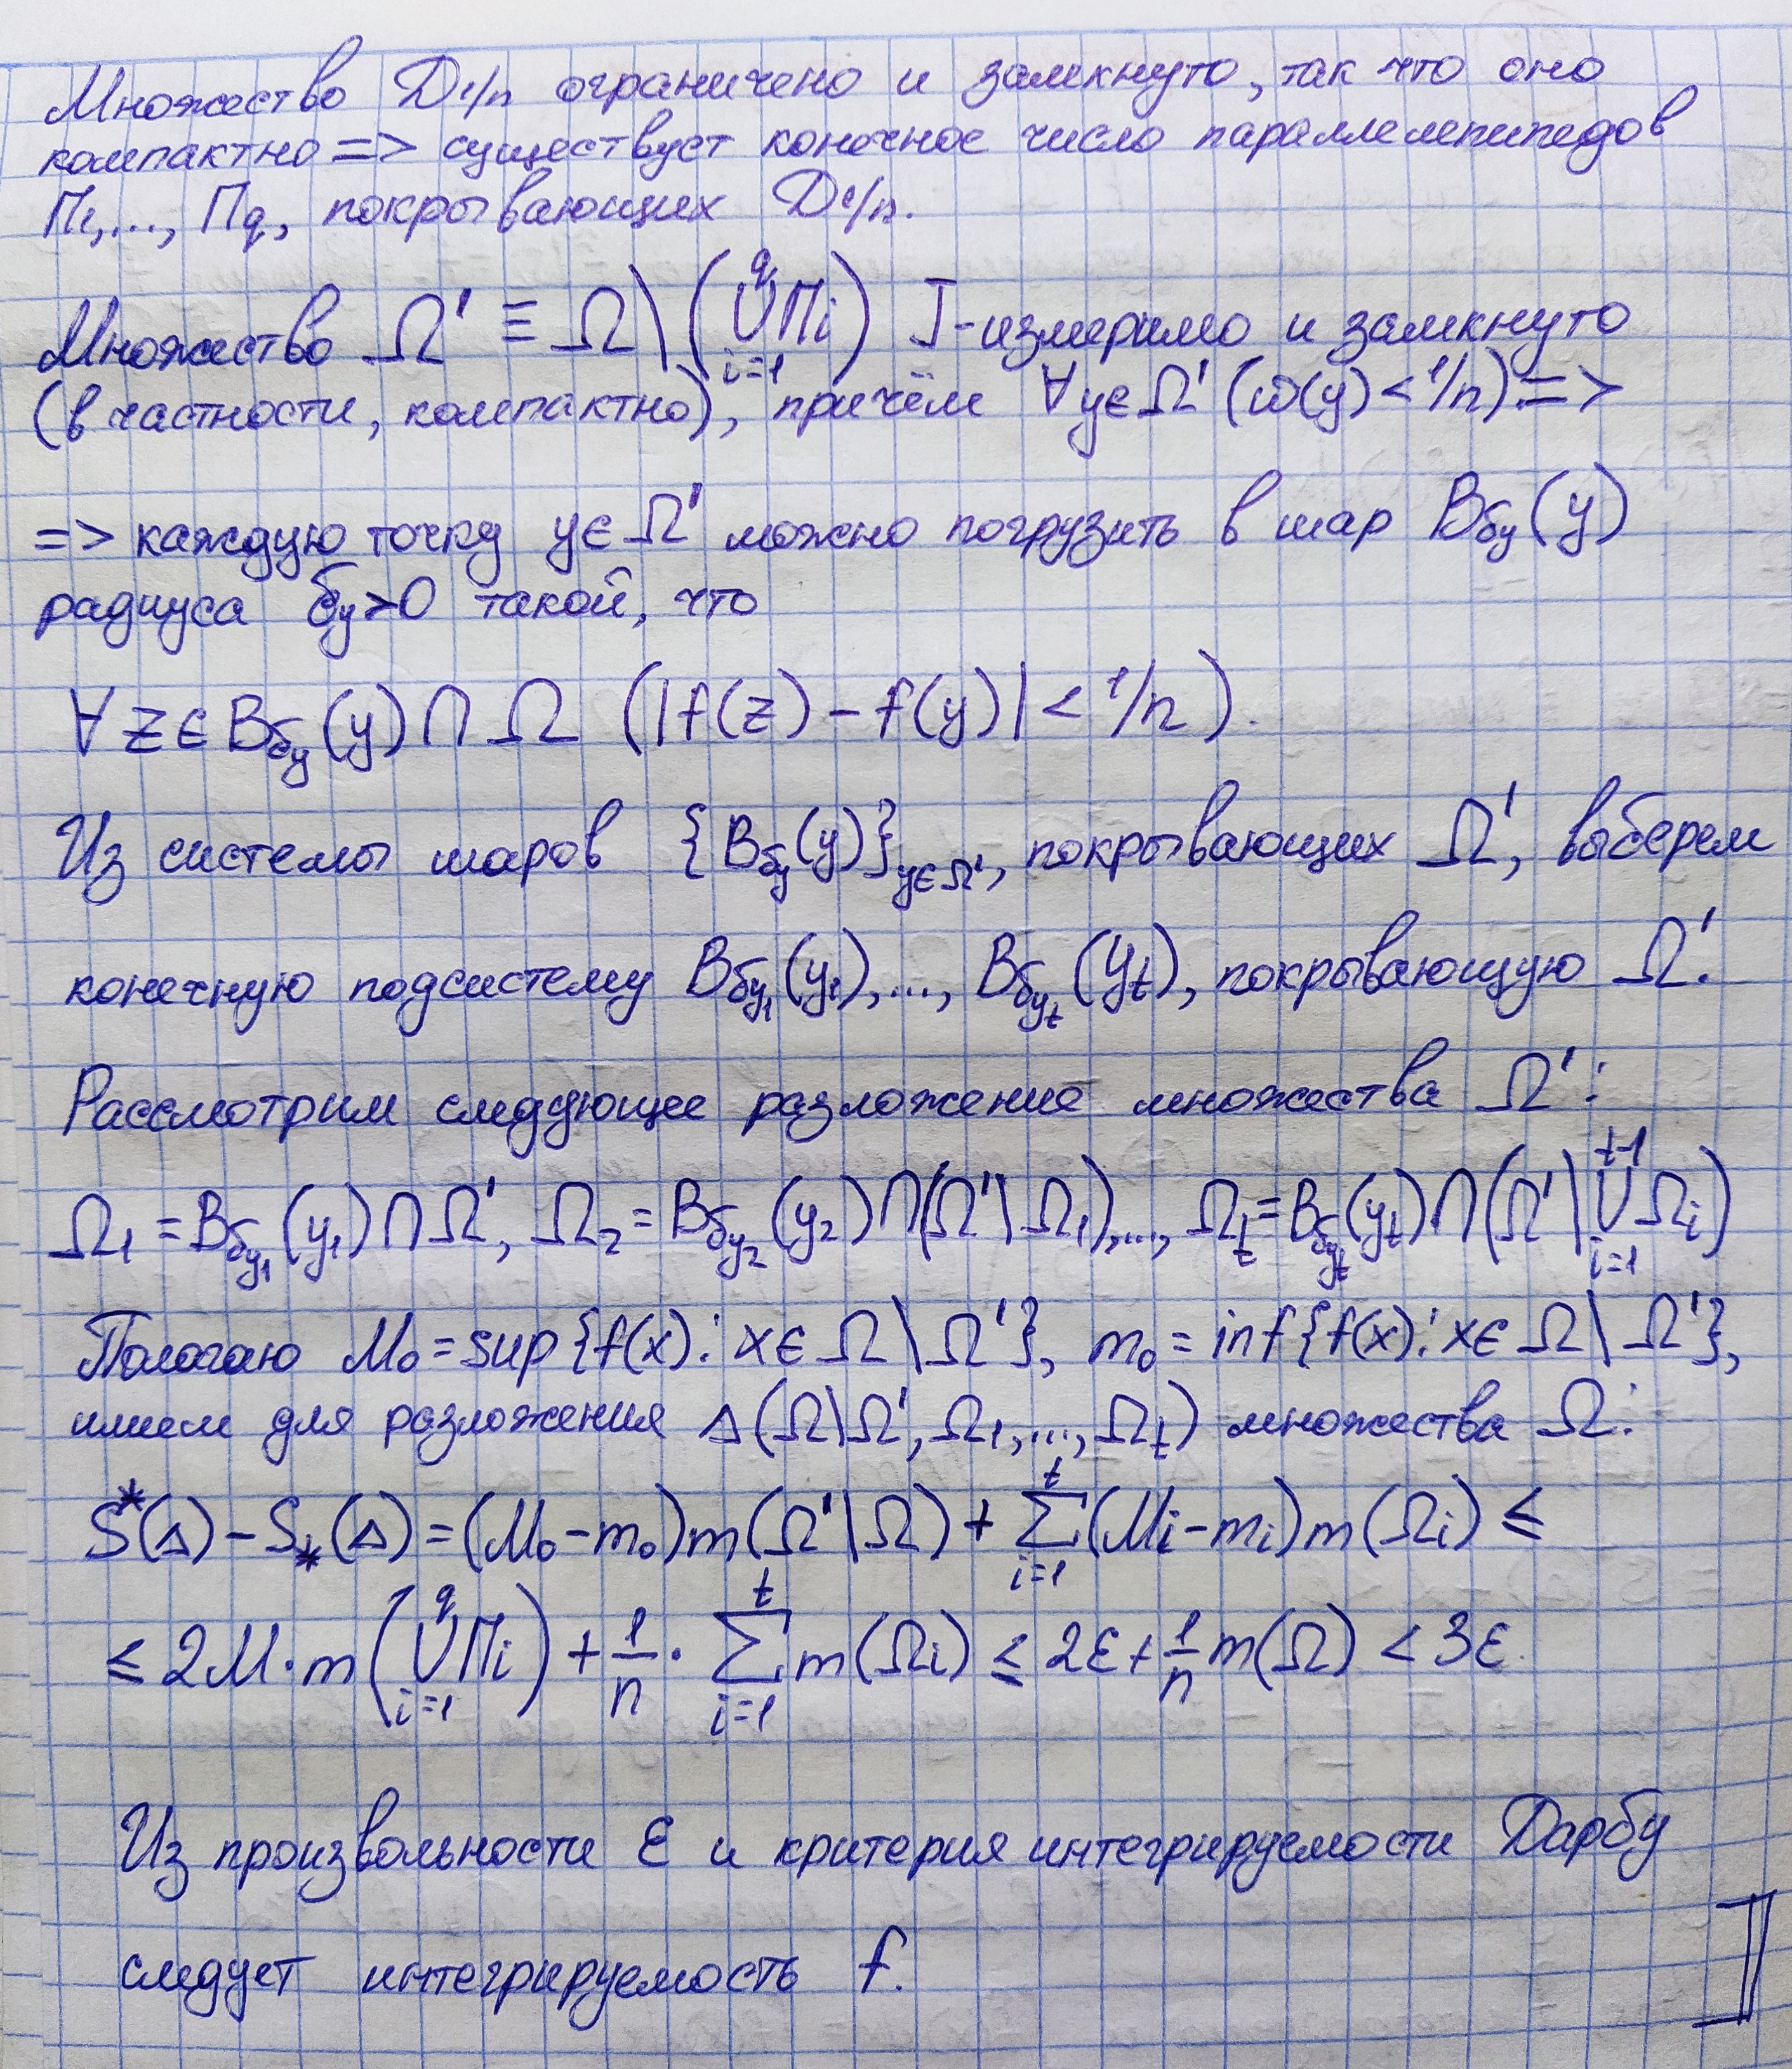 Множество D1/n ограничено и замкнуто, так что оно
компактно => существует конечное число параллелепипедов
П1,..., Пq, покрывающих D1/n.
Множество Ω' ≡ Ω \ (⋃_{i=1}^{q} Пi) J-измеримо и замкнуто
(в частности, компактно), причём ∀y∈Ω' (ω(y) < 1/n) =>
=> каждую точку y∈Ω' можно погрузить в шар B_{δy}(y)
радиуса δy>0 такой, что
∀z∈B_{δy}(y)∩Ω (|f(z) – f(y)| < 1/n).
Из системы шаров {B_{δy}(y)}_{y∈Ω'}, покрывающих Ω', выберем
конечную подсистему B_{δy1}(y1),..., B_{δyt}(yt), покрывающую Ω'.
Рассмотрим следующее разложение множества Ω':
Ω1 = B_{δy1}(y1)∩Ω', Ω2 = B_{δy2}(y2)∩(Ω'\Ω1),..., Ωt = B_{δyt}(yt)∩(Ω'\⋃_{i=1}^{t-1} Ωi)
Полагаю M0 = sup{f(x): x∈Ω\Ω'}, m0 = inf{f(x): x∈Ω\Ω'},
имеем для разложения Δ(Ω\Ω', Ω1,..., Ωt) множества Ω:
S*(Δ) – S_*(Δ) = (M0 – m0)m(Ω'\Ω) + ∑_{i=1}^{t}(Mi – mi)m(Ωi) ≤
≤ 2M·m(⋃_{i=1}^{q} Пi) + 1/n · ∑_{i=1}^{t} m(Ωi) ≤ 2ε + 1/n m(Ω) < 3ε.
Из произвольности ε и критерия интегрируемости Дарбу
следует интегрируемость f.